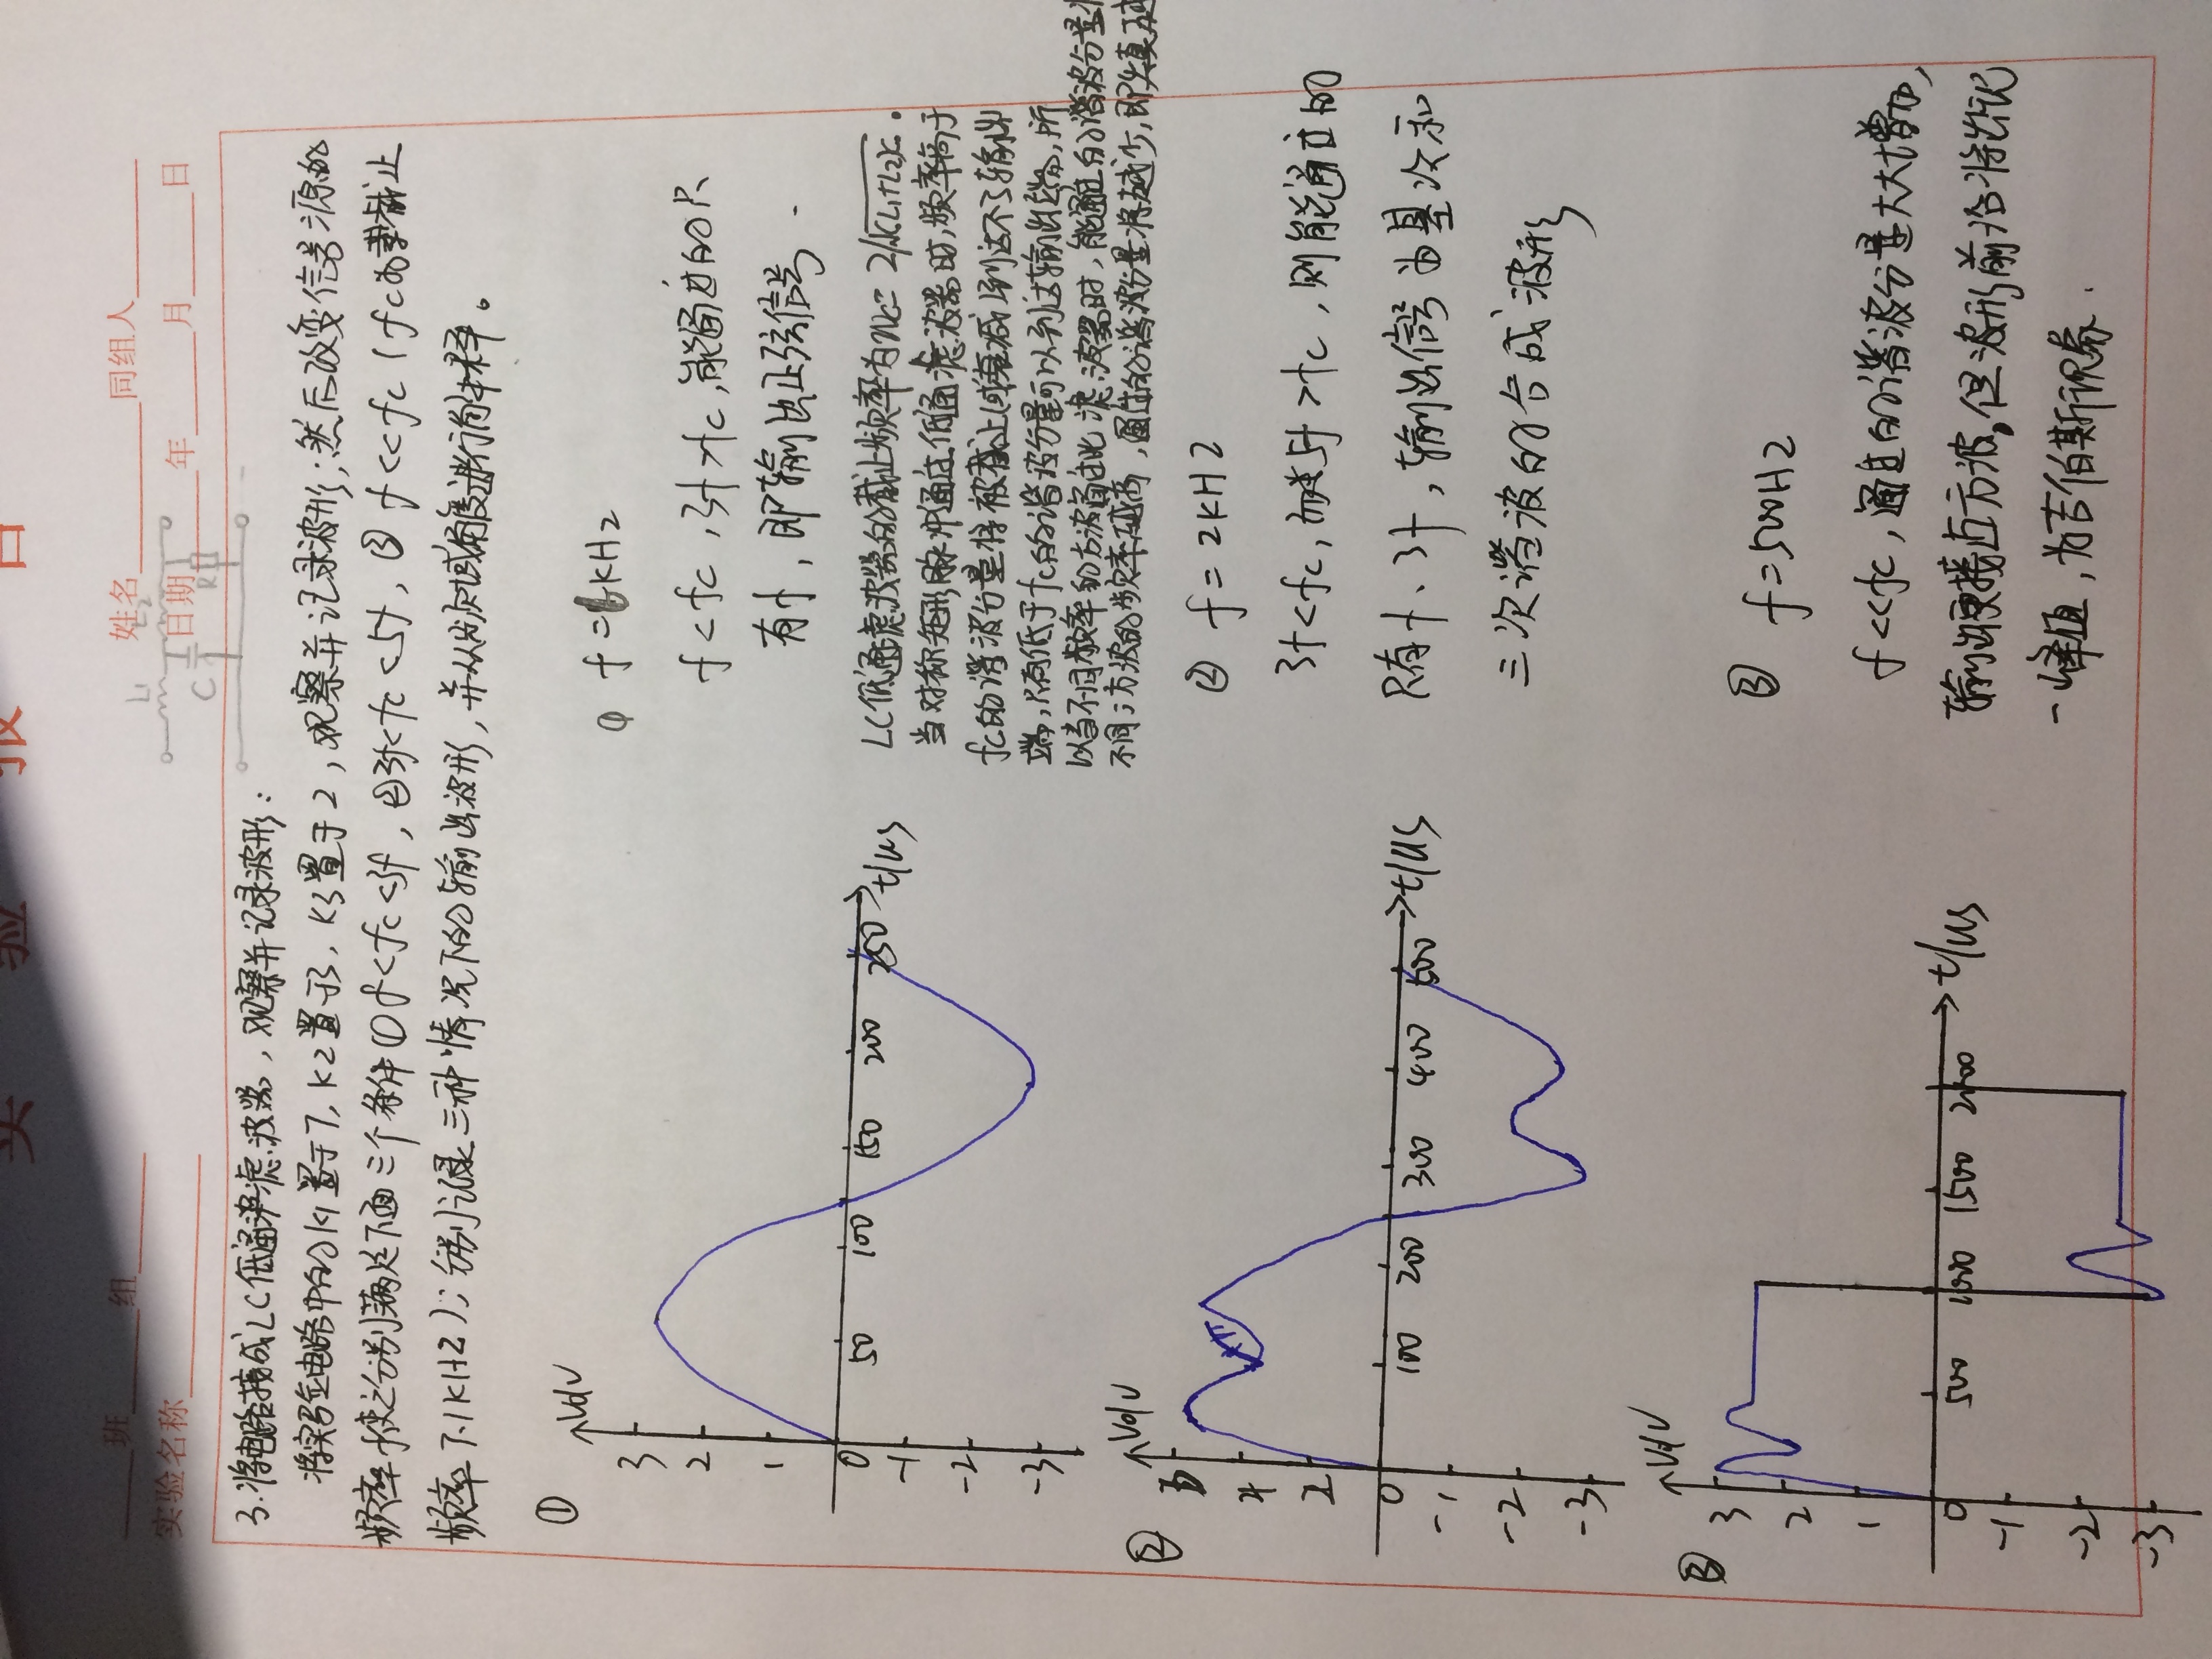 实 验 报 告
班 组
姓名 同组人
实验名称
日期 年 月 日
L1 L2
C R
3.将电路接成LC低通滤波器，观察并记录波形：
将实验电路中的K1置于7，K2置于3，K3置于2，观察并记录波形；然后改变信号源的
频率f使之分别满足下面三个条件①f<fc<3f，②3f<fc<5f，③ f<<fc（fc为截止
频率7.1KHZ）；分别记录三种情况下的输出波形，并从频域角度进行解释。
①
Vo/V
3
2
1
0 50 100 150 200 250 t/us
-1
-2
-3
① f=6KHz
f<fc，3f>fc，能通过的只
有f，即输出正弦信号.
LC低通滤波器的截止频率为wc=2/√(L1+L2)C。
当对称矩形脉冲通过低通滤波器时，频率高于
fc的谐波分量将被截止(或衰减)到达不了输出
端，只有低于fc的谐波分量可以到达输出端，所
以当不同频率的方波通过此滤波器时，能通过的谐波分量
不同；方波的频率越高，通过的谐波分量将越少，即失真越
②
Vo/V
4
2
0 100 200 300 400 500 t/us
-1
-2
-3
② f=2KHZ
3f<fc，而5f>fc，则能通过的
只有f、3f，输出信号为基次和
三次谐波的合成波形
③
Vo/V
3
2
1
0 500 1000 1500 2000 t/us
-1
-2
-3
③ f=500HZ
f<<fc，通过的谐波分量大大增加，
输出更接近方波。但波形前沿将出现
一峰值，为吉伯斯现象.